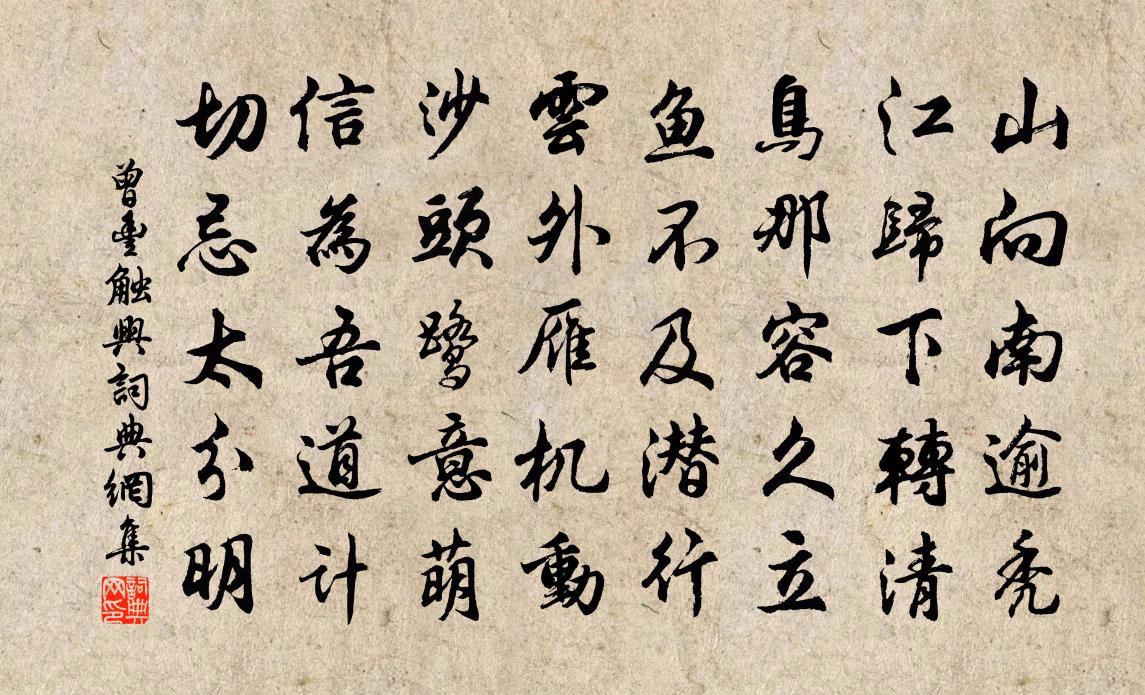 山向南逾秃
江歸下轉清
鳥那容久立
鱼不及潜行
雲外雁机動
沙頭鹭意萌
信為吾道计
切忌太分明
曾豊触興詞典網集
詞典網印